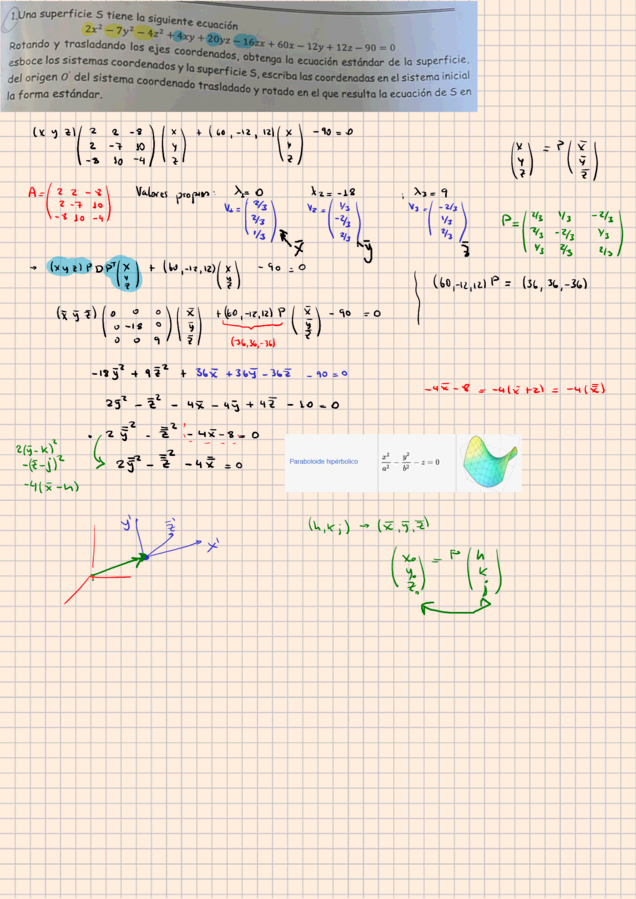 1.Una superficie S tiene la siguiente ecuación
2x² − 7y² − 4z² + 4xy + 20yz − 16zx + 60x − 12y + 12z − 90 = 0
Rotando y trasladando los ejes coordenados, obtenga la ecuación estándar de la superficie,
esboce los sistemas coordenados y la superficie S, escriba las coordenadas en el sistema inicial
del origen O' del sistema coordenado trasladado y rotado en el que resulta la ecuación de S en
la forma estándar.
(x y z) (2 2 -8
2 -7 10
-8 10 -4) (x
y
z) + (60, -12, 12) (x
y
z) - 90 = 0
(x
y
z) = P (x̄
ȳ
z̄)
A = (2 2 -8
2 -7 10
-8 10 -4)
Valores propios: λ₁ = 0 λ₂ = -18 ; λ₃ = 9
V₁ = (2/3
2/3
1/3) V₂ = (1/3
-2/3
2/3) V₃ = (-2/3
1/3
2/3)
x̄ ȳ z̄
P = (2/3 1/3 -2/3
2/3 -2/3 1/3
1/3 2/3 2/3)
→ (x y z) P D Pᵀ (x
y
z) + (60, -12, 12) (x
y
z) - 90 = 0
(60, -12, 12) P = (36, 36, -36)
(x̄ ȳ z̄) (0 0 0
0 -18 0
0 0 9) (x̄
ȳ
z̄) + (60, -12, 12) P (x̄
ȳ
z̄) - 90 = 0
(36, 36, -36)
-18ȳ² + 9z̄² + 36x̄ + 36ȳ - 36z̄ - 90 = 0
2ȳ² - z̄² - 4x̄ - 4ȳ + 4z̄ - 10 = 0
-4x̄ - 8 = -4(x̄ + 2) = -4(x̿)
2y̿² - z̿² - 4x̄ - 8 = 0
2y̿² - z̿² - 4x̿ = 0
2(ȳ - k)²
-(z̄ - j)²
-4(x̄ - h)
Paraboloide hipérbolico
x²/a² − y²/b² − z = 0
y' z' x'
(h, k, j) → (x̄, ȳ, z̄)
(x₀
y₀
z₀) = P (h
k
j)